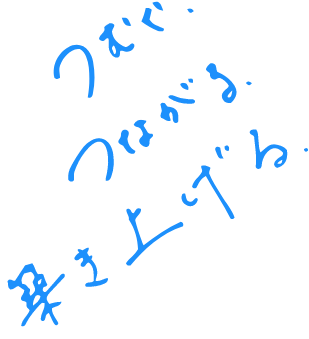 つむぐ.
つながる.
築き上げる.